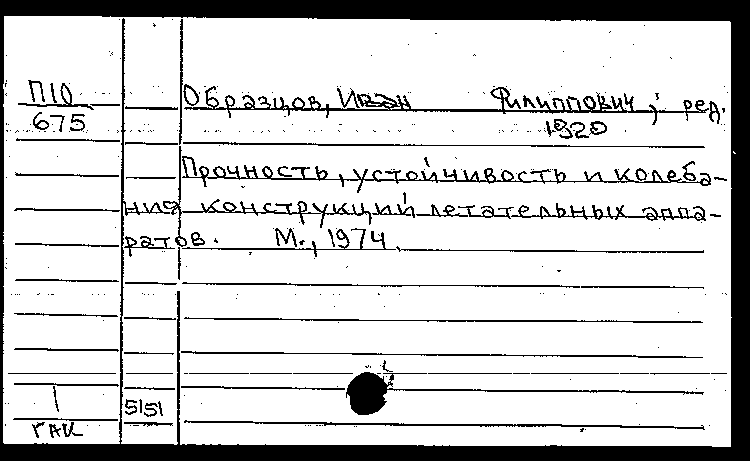 П10
675
Образцов, Иван Филиппович, ред.
1920
Прочность, устойчивость и колеба-
ния конструкций летательных аппа-
ратов. М., 1974.
1
5151
ГАК